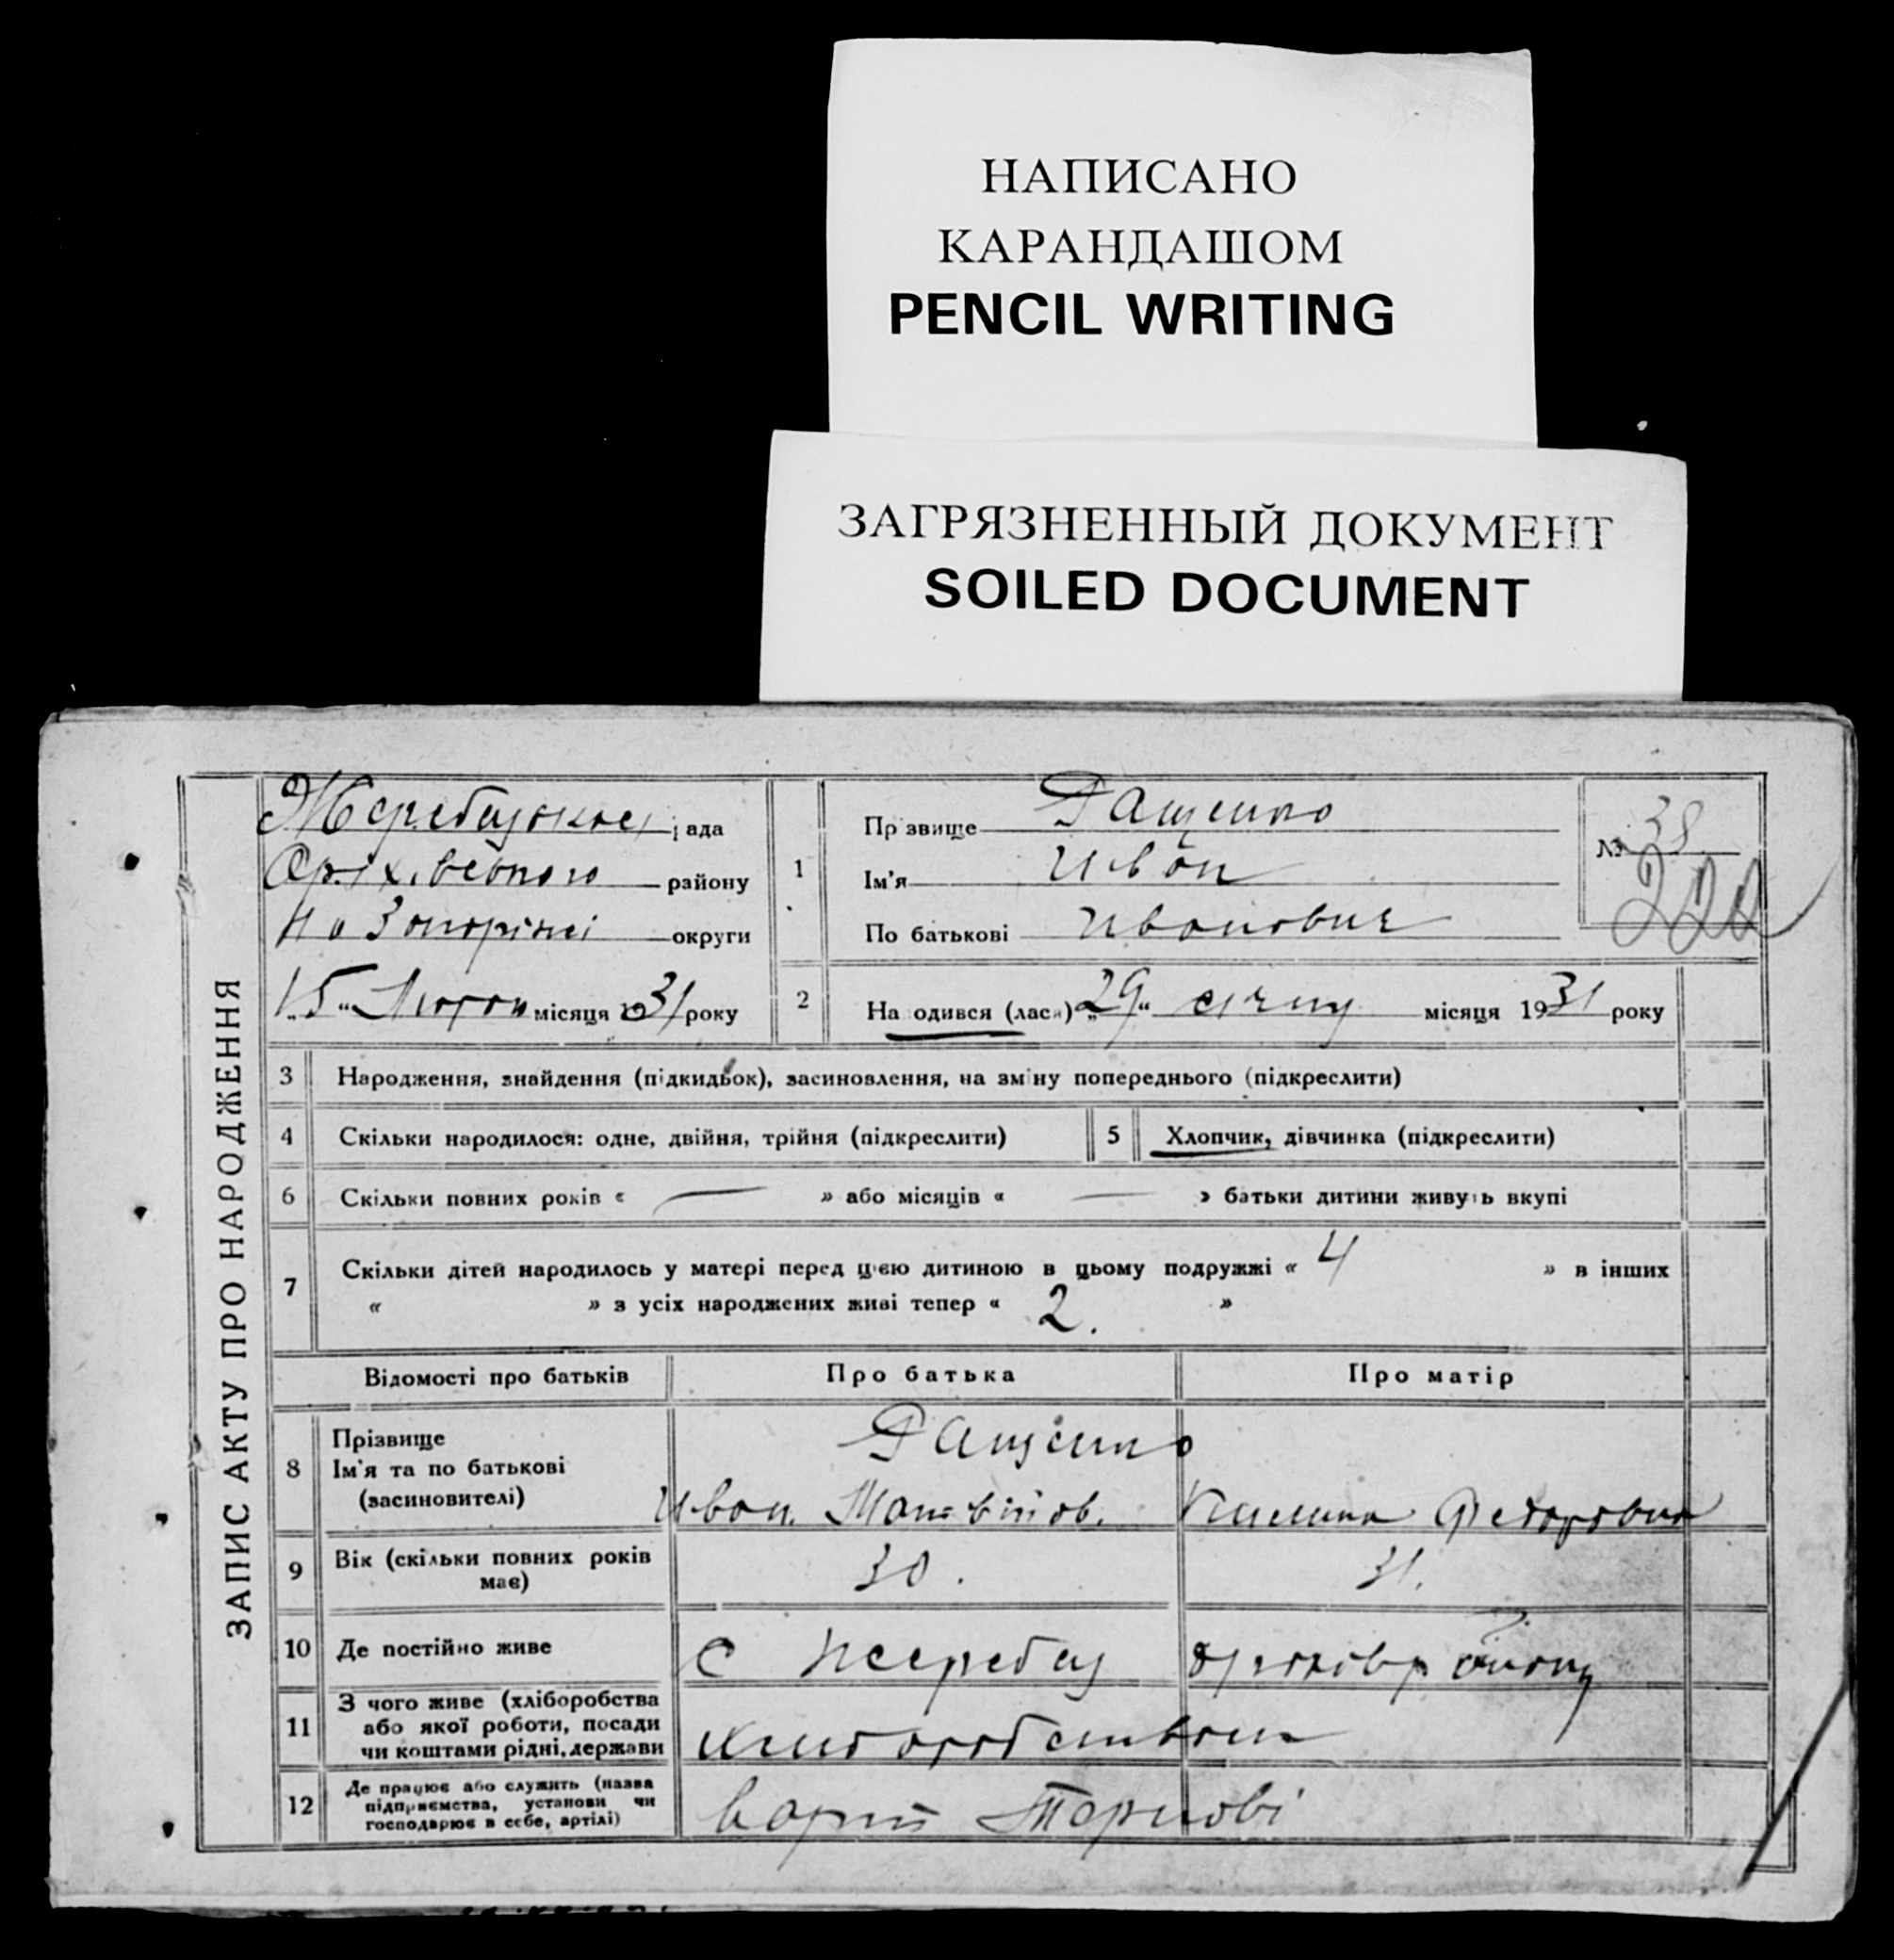 НАПИСАНО
КАРАНДАШОМ
PENCIL WRITING
ЗАГРЯЗНЕННЫЙ ДОКУМЕНТ
SOILED DOCUMENT
ЗАПИС АКТУ ПРО НАРОДЖЕННЯ
рада
району
округи
15 Лютого місяця 1931 року
1
Прізвище Дащенко
Ім'я Иван
По батькові Иванович
№ 38
2
Народився (лася) „29“ січня місяця 1931 року
3 Народження, знайдення (підкидьок), засиновлення, на зміну попереднього (підкреслити)
4 Скільки народилося: одне, двійня, трійня (підкреслити)
5 Хлопчик, дівчинка (підкреслити)
6 Скільки повних років « — » або місяців « — » батьки дитини живуть вкупі
7 Скільки дітей народилось у матері перед цією дитиною в цьому подружжі « 4 » в інших
« » з усіх народжених живі тепер « 2. »
Відомості про батьків Про батька Про матір
8 Прізвище
Ім'я та по батькові
(засиновителі)
Дащенко
Иван. Матвійов. Федоровна
9 Вік (скільки повних років
має)
30. 31.
10 Де постійно живе
с Жеребец
11 З чого живе (хліборобства
або якої роботи, посади
чи коштами рідні, держави
хліборобством
12 Де працює або служить (назва
підприємства, установи чи
господарює в себе, артілі)